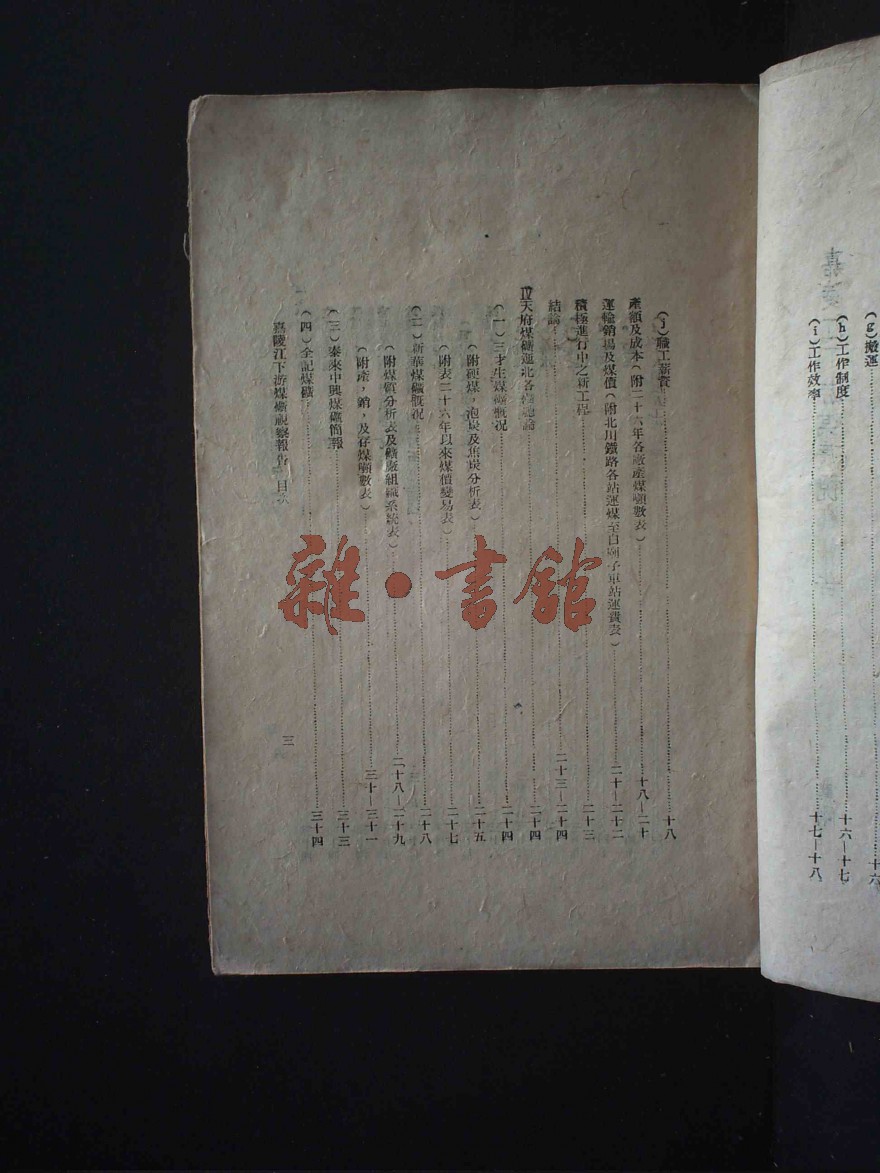 (g)搬運……十六
(h)工作制度……十六—十七
(i)工作效率……十七—十八
(j)職工薪資……十八
產額及成本(附二十六年各廠產煤噸數表)……十八—二十
運輸銷場及煤價(附北川鐵路各站運煤至白廟子車站運費表)……二十—二十二
積極進行中之新工程……二十三
結論……二十三—二十四
Ⅳ天府煤礦運北各礦總論……二十四
(一)三才生煤礦概況……二十四
(附硬煤,泡炭及焦炭分析表)……二十五
(附表二十六年以來煤價變易表)……二十七
(二)新華煤礦概況……二十八
(附煤質分析表及礦廠組織系統表)……二十八—二十九
(附產,銷,及存煤噸數表)……三十—三十一
(三)泰來中興煤礦簡報……三十三
(四)全記煤礦……三十四
嘉陵江下游煤礦視察報告 目次
三
雜·書館